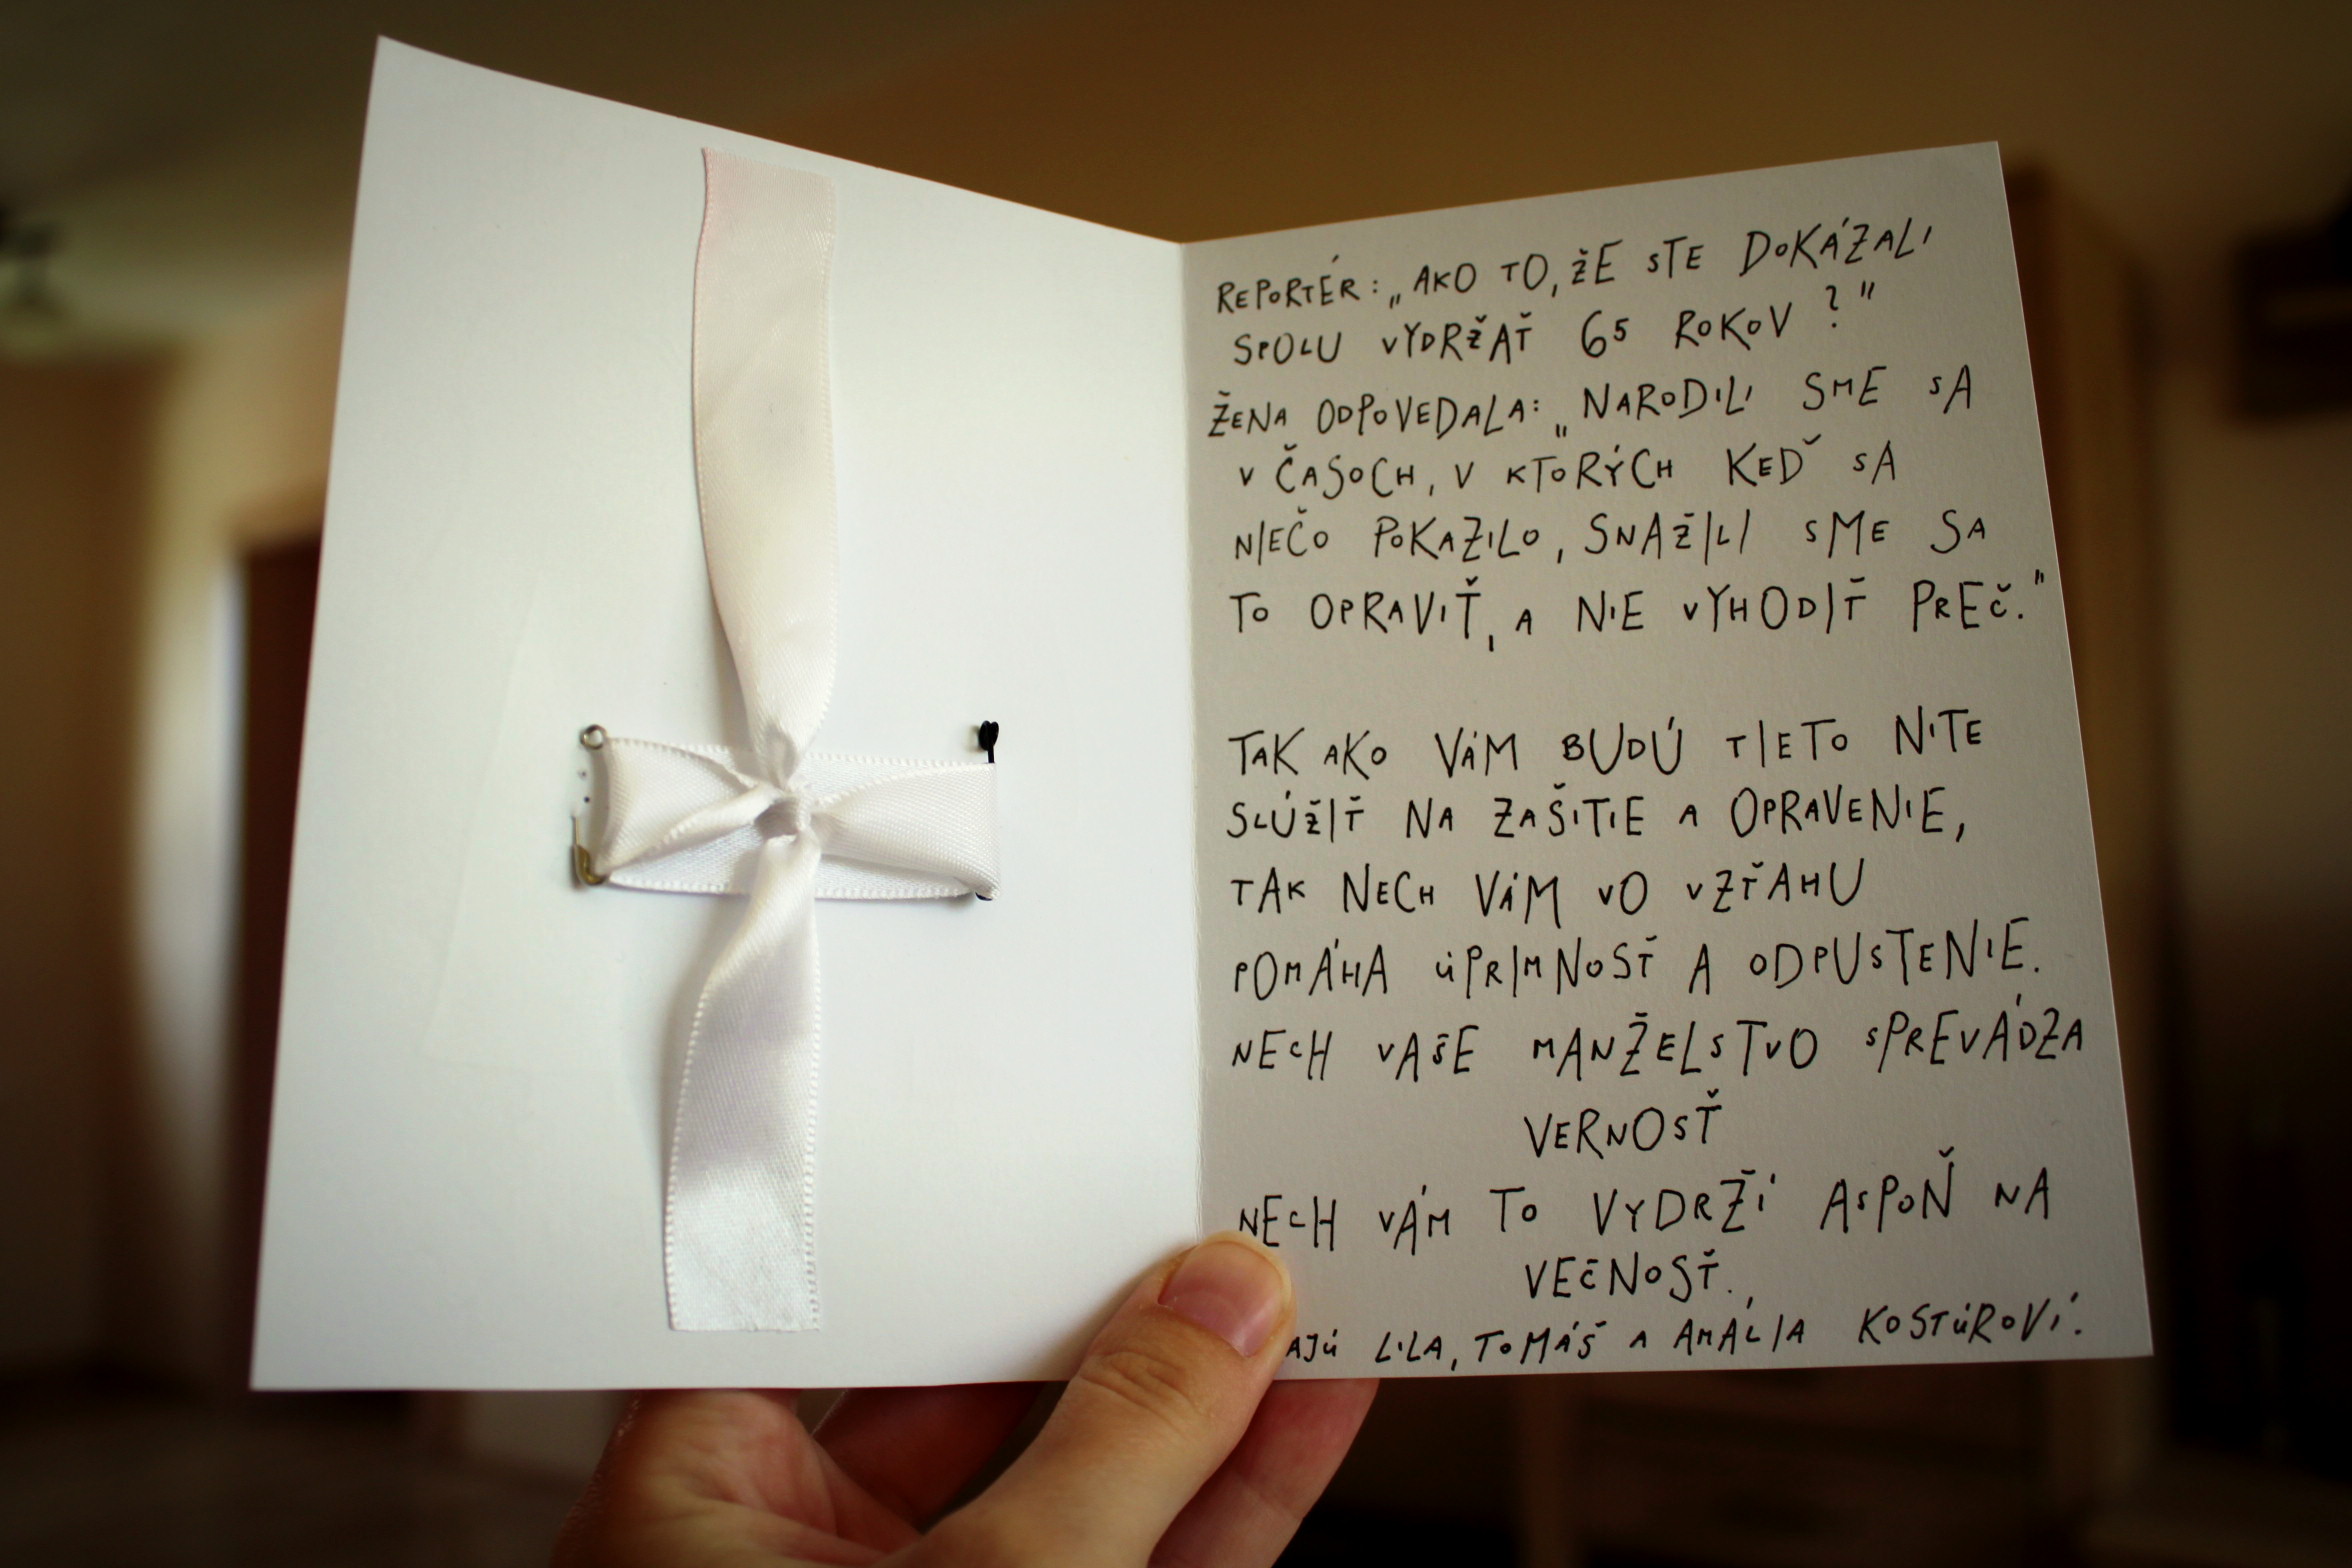 REPORTÉR: „AKO TO, ŽE STE DOKÁZALI
SPOLU VYDRŽAŤ 65 ROKOV?"
ŽENA ODPOVEDALA: „NARODILI SME SA
V ČASOCH, V KTORÝCH KEĎ SA
NIEČO POKAZILO, SNAŽILI SME SA
TO OPRAVIŤ, A NIE VYHODIŤ PREČ."
TAK AKO VÁM BUDÚ TIETO NITE
SLÚŽIŤ NA ZAŠITIE A OPRAVENIE,
TAK NECH VÁM VO VZŤAHU
POMÁHA ÚPRIMNOSŤ A ODPUSTENIE.
NECH VAŠE MANŽELSTVO SPREVÁDZA
VERNOSŤ
NECH VÁM TO VYDRŽÍ ASPOŇ NA
VEČNOSŤ.
AJÚ LILA, TOMÁŠ A AMÁLIA KOSTÚROVÍ.